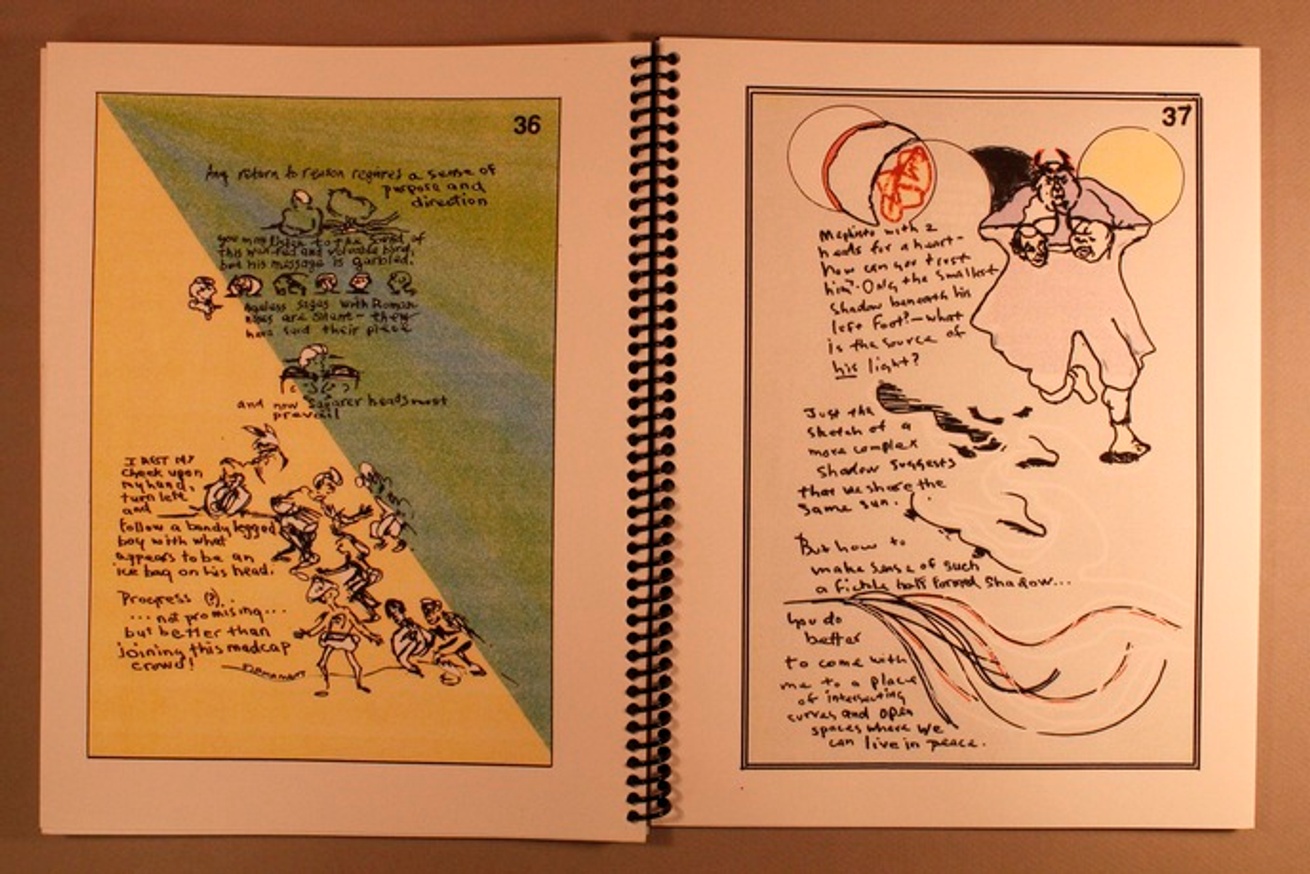 36
Any return to reason requires a sense of
purpose and
direction
you may listen to the sound of
this and voluable bird,
but his message is garbled.
Ageless sages with Roman
noses are silent - they
have said their piece
and now squarer heads must
prevail
I REST MY
cheek upon
my hand,
turn left
and
follow a bandy legged
boy with what
appears to be an
ice bag on his head.
Progress (?)..
... not promising...
but better than
joining this madcap
crowd!
37
Mephisto with 2
heads for a heart-
how can you trust
him? Only the smallest
shadow beneath his
left foot! - what
is the source of
his light?
Just the
sketch of a
more complex
shadow suggests
that we share the
same sun.
But how to
make sense of such
a fickle half formed shadow...
you do
better
to come with
me to a place
of intersecting
curves and open
spaces where we
can live in peace.